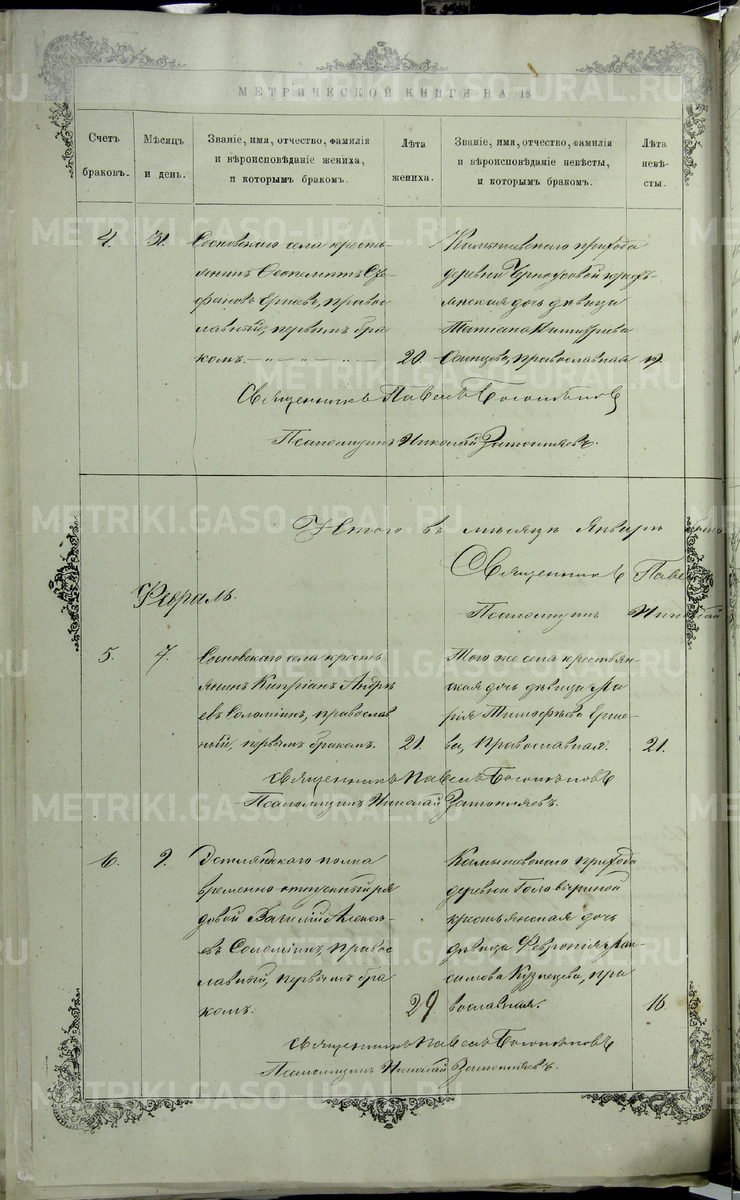 МЕТРИЧЕСКОЙ КНИГИ НА 18
Счетъ браковъ.
Мѣсяцъ и день.
Званіе, имя, отчество, фамилія и вѣроисповѣданіе жениха, и которымъ бракомъ.
Лѣта жениха.
Званіе, имя, отчество, фамилія и вѣроисповѣданіе невѣсты, и которымъ бракомъ.
Лѣта невѣ-сты.
4.
31.
Сосновскаго села кресть
янинъ
фановъ Ершовъ, правос
лавный, первымъ бра
комъ.
20.
Камышевскаго прихода
деревни Черноусовой кресть-
янская дочь дѣвица
Татіана Димитріева
православная
Священникъ Павелъ
Псаломщикъ Николай
Итого въ мѣсяцѣ Январѣ было
Священникъ Паве
Псаломщикъ Николай
Февраль.
5.
7.
Сосновскаго села кресть
янинъ Кипріанъ Андрѣ
евъ Соломеинъ, православ
ный, первымъ бракомъ.
21.
Того же села крестьян-
ская дочь дѣвица Ма
рія Тимофѣева Ерше-
ва, Православная.
21.
Священникъ Павелъ
Псаломщикъ Николай
6.
9.
полка
временно-отпускный ря
довой Василій Алексѣ-
евъ Соломеинъ, правос
лавный, первымъ бра
комъ.
29.
Камышевскаго прихода
деревни Головыриной
крестьянская дочь
дѣвица Февронія Мак-
симова Кузнецова, пра
вославная.
16.
Священникъ Павелъ
Псаломщикъ Николай
METRIKI.GASO-URAL.RU